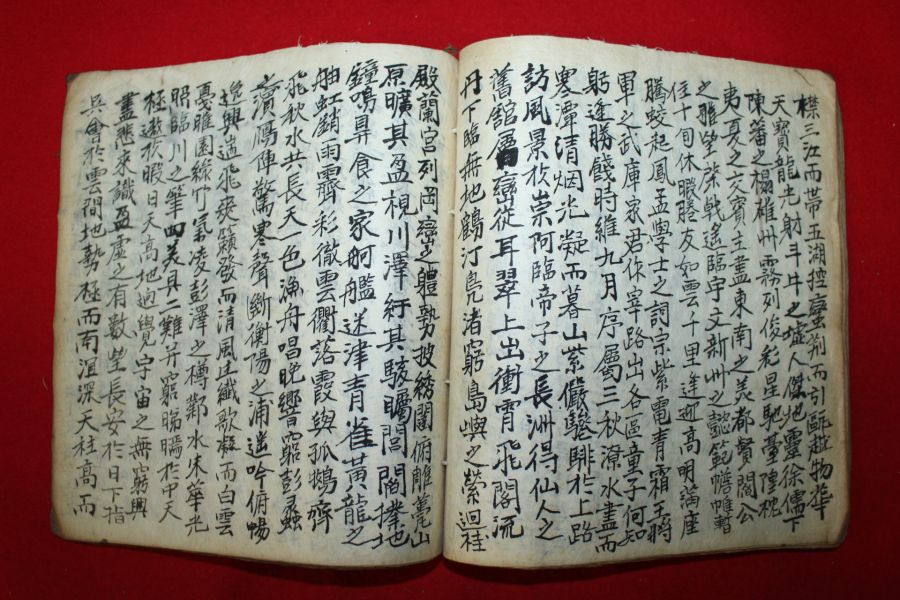 襟三江而帶五湖控蠻荊而引甌越物華
天寶龍光射斗牛之墟人傑地靈徐儒下
陳蕃之榻雄州霧列俊彩星馳臺隍枕
夷夏之交賓主盡東南之美都督閻公
之雅望棨戟遙臨宇文新州之懿範襜帷暫
住十旬休暇勝友如雲千里逢迎高明滿座
騰蛟起鳳孟學士之詞宗紫電青霜王將
軍之武庫家君作宰路出名區童子何知
躬逢勝餞時維九月序屬三秋潦水盡而
寒潭清烟光凝而暮山紫儼驂騑於上路
訪風景於崇阿臨帝子之長洲得仙人之
舊舘層巒聳翠上出衝霄飛閣流
丹下臨無地鶴汀鳧渚窮島嶼之縈迴桂
殿蘭宮列岡巒之軆勢披綉闥俯雕甍山
原曠其盈視川澤紆其駭矚閭閻撲地
鐘鳴鼎食之家舸艦迷津青雀黃龍之
舳虹銷雨霽彩徹雲衢落霞與孤鶩齊
飛秋水共長天一色漁舟唱晚響窮彭蠡
之濱鴈陣驚寒聲斷衡陽之浦遙吟俯暢
逸興遄飛爽籟發而清風生纖歌凝而白雲
憂睢園綠竹氣凌彭澤之樽鄴水朱華光
照臨川之筆四美具二難并窮睇眄於中天
極遨於暇日天高地逈覺宇宙之無窮興
盡悲來識盈虛之有數望長安於日下指
吳會於雲間地勢極而南溟深天柱高而